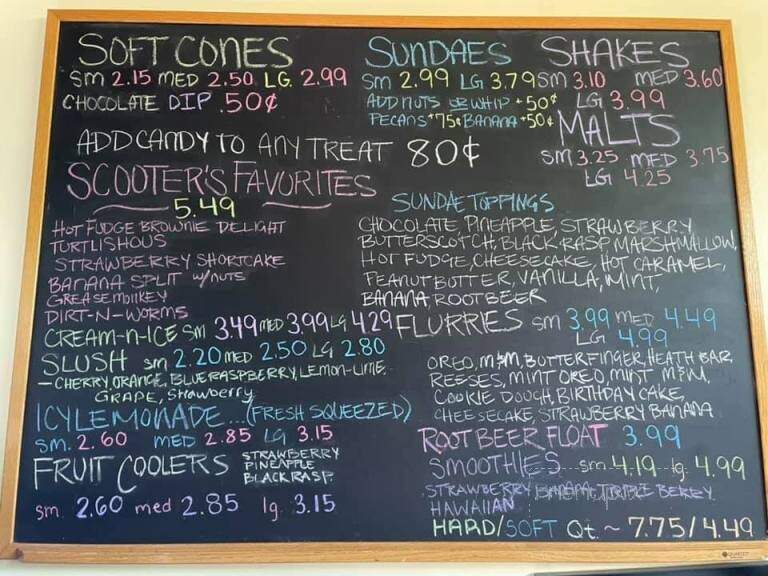 SOFT CONES
Sm 2.15 MED 2.50 LG. 2.99
CHOCOLATE DIP .50¢
SUNDAES
Sm 2.99 LG 3.79
ADD NUTS OR WHIP +50¢
PECANS +75¢ BANANA +50¢
SHAKES
Sm 3.10 MED 3.60
LG 3.99
MALTS
SM 3.25 MED 3.75
LG 4.25
ADD CANDY TO ANY TREAT 80¢
SCOOTER'S FAVORITES
5.49
HOT FUDGE BROWNIE DELIGHT
TURTLISHOUS
STRAWBERRY SHORTCAKE
BANANA SPLIT w/NUTS
GREASE MONKEY
DIRT-N-WORMS
SUNDAE TOPPINGS
CHOCOLATE, PINEAPPLE, STRAWBERRY
BUTTERSCOTCH, BLACK RASP, MARSHMALLOW,
HOT FUDGE, CHEESECAKE, HOT CARAMEL,
PEANUT BUTTER, VANILLA, MINT,
BANANA, ROOTBEER
CREAM-N-ICE SM 3.49 MED 3.99 LG 4.29
SLUSH sm 2.20 MED 2.50 LG 2.80
- CHERRY, ORANGE, BLUE RASPBERRY, LEMON-LIME,
GRAPE, Strawberry
ICY LEMONADE...(FRESH SQUEEZED)
Sm. 2.60 MED 2.85 LG 3.15
FRUIT COOLERS
STRAWBERRY
PINEAPPLE
BLACK RASP.
sm. 2.60 med 2.85 lg. 3.15
FLURRIES sm 3.99 MED 4.49
LG 4.99
OREO, M&M, BUTTERFINGER, HEATH BAR,
REESES, MINT OREO, MINT M&M,
COOKIE DOUGH, BIRTHDAY CAKE,
CHEESECAKE, STRAWBERRY BANANA
ROOT BEER FLOAT 3.99
SMOOTHIES sm 4.19 lg. 4.99
STRAWBERRY BANANA TRIPLE BERRY
HAWAIIAN
HARD/SOFT Qt. ~ 7.75/4.49